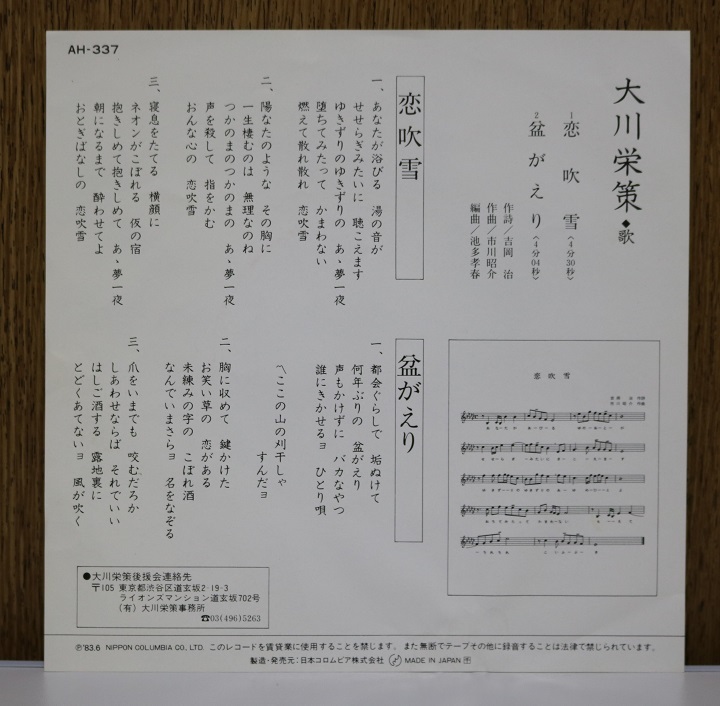 AH-337
大川栄策◆歌
1 恋吹雪〈4分30秒〉
2 盆がえり〈4分04秒〉
作詩／吉岡 治
作曲／市川昭介
編曲／池多孝春
恋吹雪
一、あなたが浴びる 湯の音が
せせらぎみたいに 聴こえます
ゆきずりのゆきずりの あゝ夢一夜
堕ちてみたって かまわない
燃えて散れ散れ 恋吹雪
二、陽なたのような その胸に
一生棲むのは 無理なのね
つかのまのつかのまの あゝ夢一夜
声を殺して 指をかむ
おんな心の 恋吹雪
三、寝息をたてる 横顔に
ネオンがこぼれる 仮の宿
抱きしめて抱きしめて あゝ夢一夜
朝になるまで 酔わせてよ
おとぎばなしの 恋吹雪
盆がえり
一、都会ぐらしで 垢ぬけて
何年ぶりの 盆がえり
声もかけずに バカなやつ
誰にきかせるョ ひとり唄
〽ここの山の刈干しゃ
すんだョ
二、胸に収めて 鍵かけた
お笑い草の 恋がある
未練みの字の こぼれ酒
なんでいまさらョ 名をなぞる
三、爪をいまでも 咬むだろか
しあわせならば それでいい
はしご酒する 露地裏に
とどくあてないョ 風が吹く
恋吹雪
●大川栄策後援会連絡先
〒105 東京都渋谷区道玄坂2-19-3
ライオンズマンション道玄坂702号
(有) 大川栄策事務所
☎03(496)5263
Ⓟ'83.6 NIPPON COLUMBIA CO., LTD. このレコードを賃貸業に使用することを禁じます。また無断でテープその他に録音することは法律で禁じられています。
製造・発売元:日本コロムビア株式会社 MADE IN JAPAN